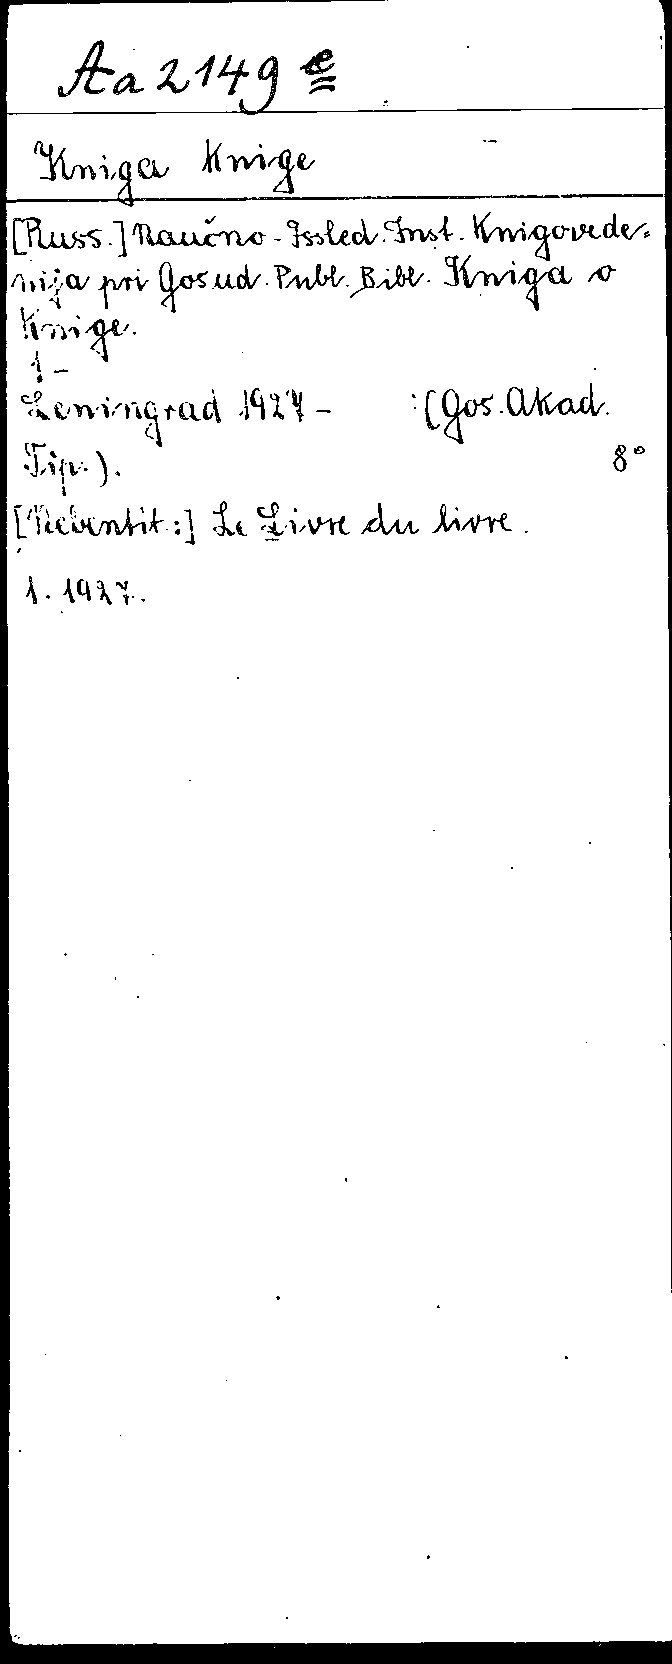 Aa 2149 e
Kniga Knige
[Russ.] Naučno-Issled. Inst. Knigovede=
nija pri Gosud. Publ. Bibl. Kniga o
Knige.
1 -
Leningrad 1927 - : (Gos. Akad.
Tip.).
8°
[Nebentit.:] Le Livre du livre.
1. 1927.